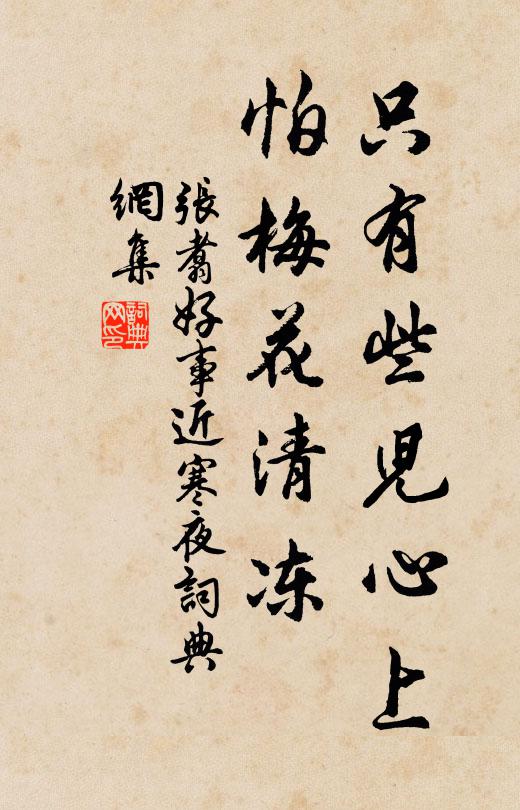 只有些児心上
怕梅花清凍
張翥好事近寒夜詞典
網集
詞典
网印